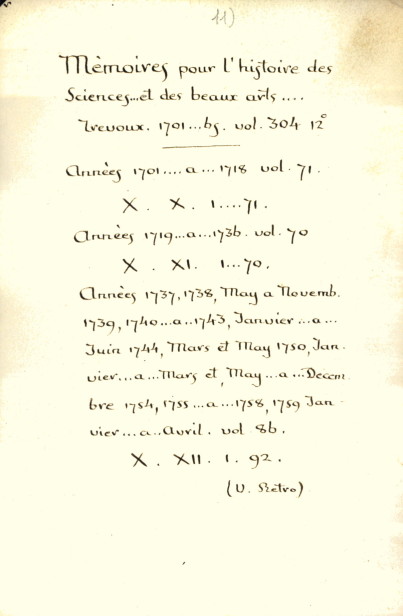 11)
Mèmoires pour l'histoire des
Sciences...et des beaux arts....
Trevoux. 1701...65. vol. 304 12°
Annèes 1701....a...1718 vol. 71.
X. X. 1....71.
Annèes 1719...a...1736. vol. 70
X. XI. 1...70.
Annèes 1737, 1738, May a Novemb.
1739, 1740...a..1743, Janvier...a...
Juin 1744, Mars et May 1750, Jan-
vier...a...Mars et, May...a...Decem
bre 1754, 1755...a...1758, 1759 Jan-
vier...a..Avril. vol 86.
X. XII. 1. 92.
(V. Retro)